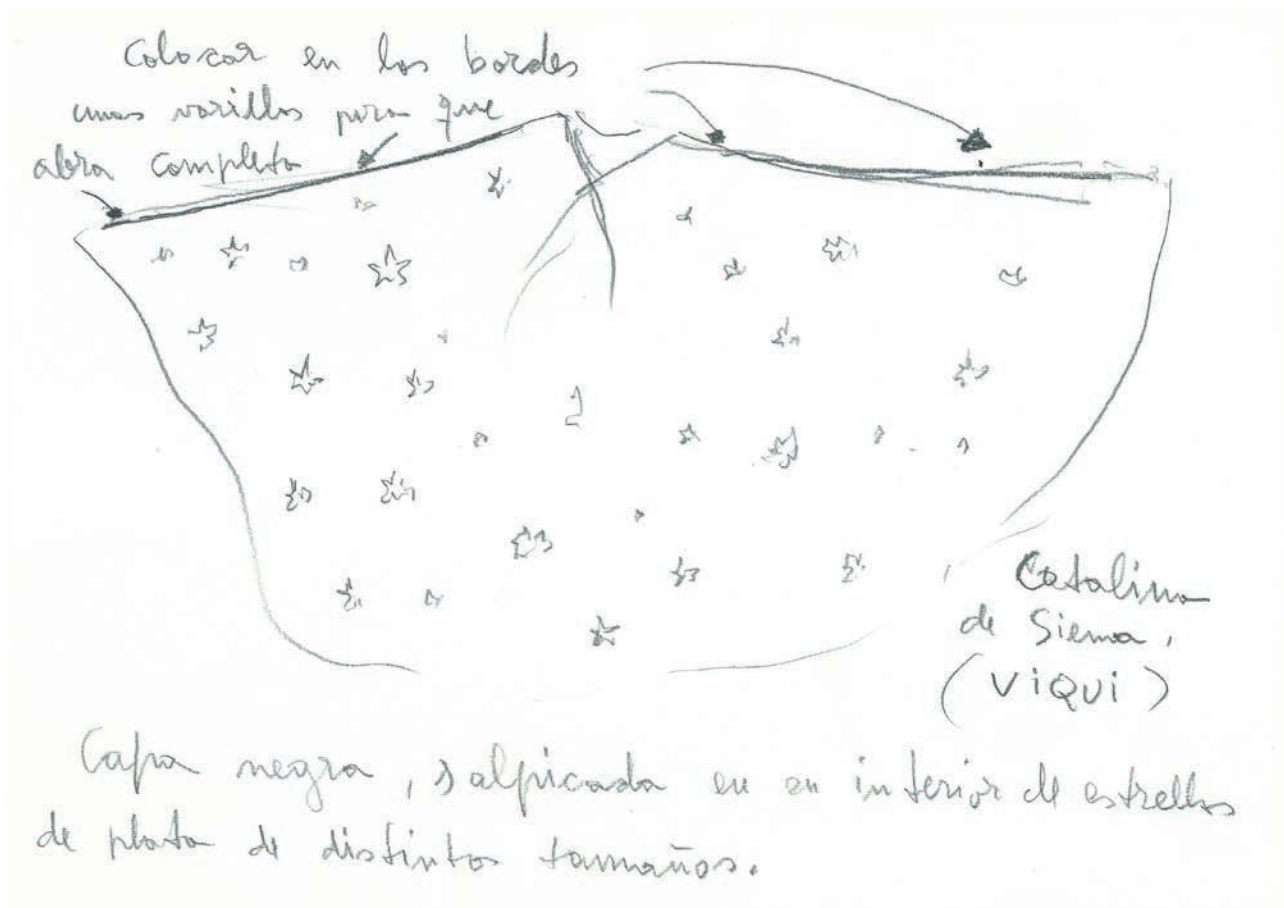 Colocar en los bordes
unas varillas para que
abra completa
Catalina
de Siena,
(ViQUi)
Capa negra, salpicada en su interior de estrellas
de plata de distintos tamaños.